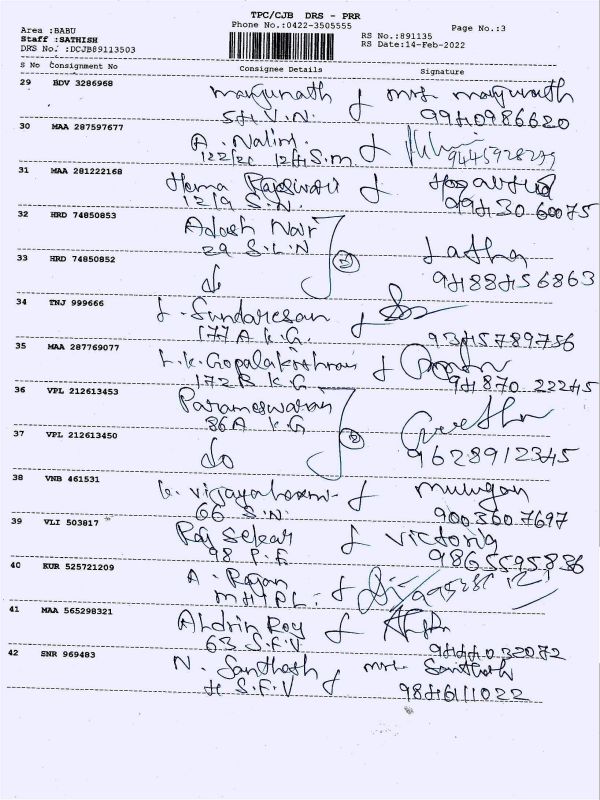 TPC/CJB DRS - PRR
Area :BABU Phone No.:0422-3505555 Page No.:3
Staff :SATHISH RS No.:891135
DRS No. :DCJB89113503 RS Date:14-Feb-2022
S No Consignment No Consignee Details Signature
29 BDV 3286968 Manjunath mrs. manjunath
S.V.N. 9940986620
30 MAA 287597677 A. Nalini
122/2C S.M 9445928299
31 MAA 281222168 Hema
12/9 S.N. 99430 60075
32 HRD 74850853 Adash Nair Latha
29 S.L.N
33 HRD 74850852 do 9488456863
34 TNJ 999666 L. Sundaresan
177A K.G. 9345789756
35 MAA 287769077 L.K. Gopalakrishnan
172B K.G 94870 22245
36 VPL 212613453 Parameswaran
86A K.G
37 VPL 212613450 do 9628912345
38 VNB 461531 Murugan
66 S.N. 900 360 7697
39 VLI 503817 Raj Sekar Victoria
98 P.E 9865595836
40 KUR 525721209 A. Rajan
41 MAA 565298321 Aldrin Roy
63 S.F.V 94440 32072
42 SNR 969483 N. Santhosh mrs. Santhosh
4 S.F.V 9846111022